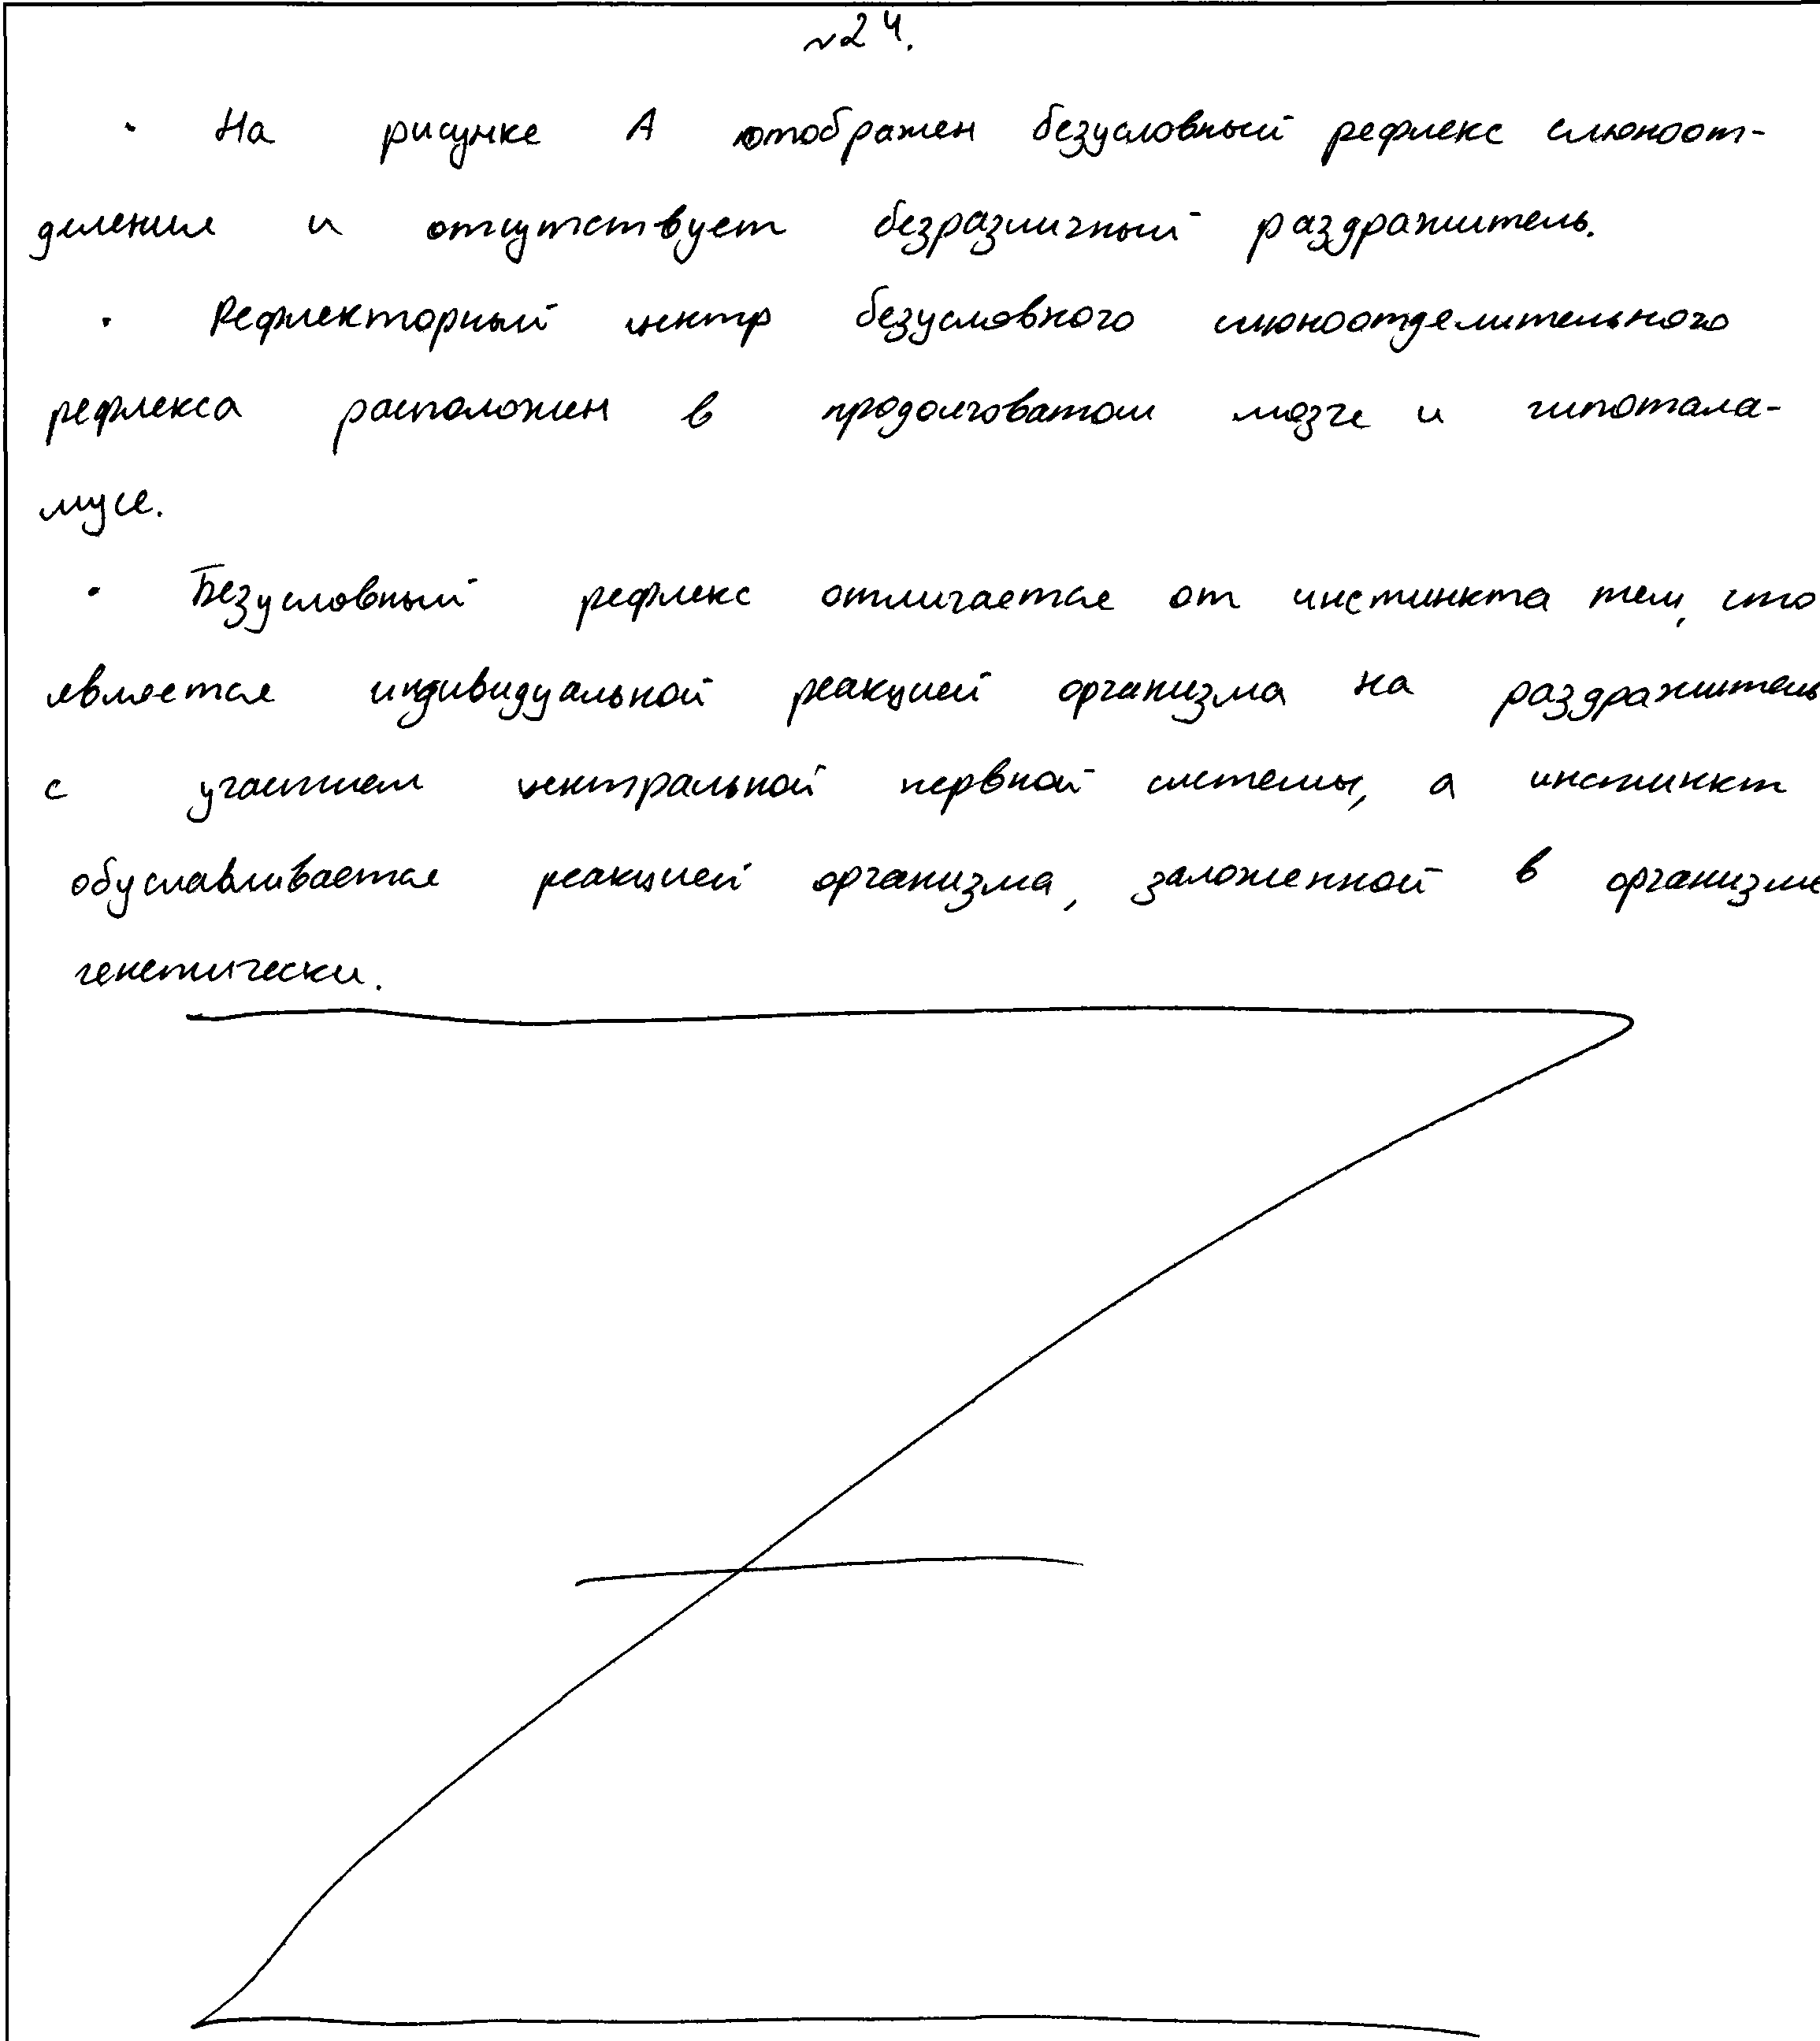 №24.
· На рисунке А отображен безусловный рефлекс слюноот-
деления и отсутствует безразличный раздражитель.
· Рефлекторный центр безусловного слюноотделительного
рефлекса расположен в продолговатом мозге и гипотала-
мусе.
· Безусловный рефлекс отличается от инстинкта тем, что
является индивидуальной реакцией организма на раздражитель
с участием центральной нервной системы, а инстинкт
обуславливается реакцией организма, заложенной в организме
генетически.